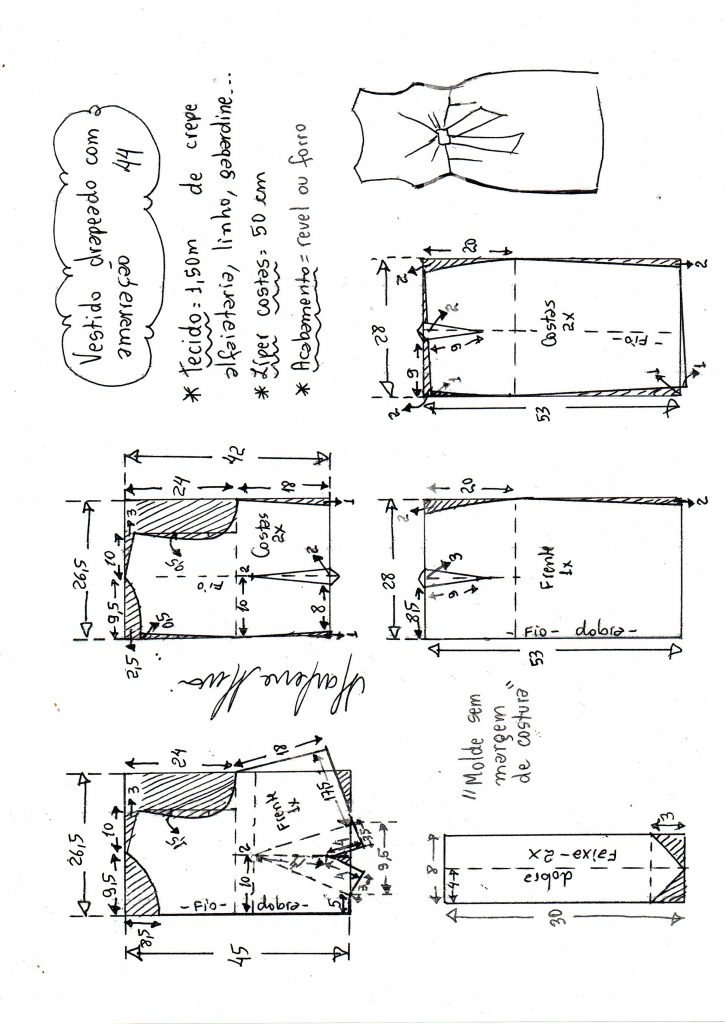 Vestido drapeado com
amarração 44
* Tecido = 1,50m de crepe
alfaiataria, linho, gabardine...
* Zíper costas = 50 cm
* Acabamento = revel ou forro
26,5
9,5
10
3
24
8,5
1,5
18
Frente
1x
10
2
-Fio- dobra-
17,5
3,5
4
4
3
5
9,5
45
26,5
9,5
10
3
24
42
2,5
0,5
1,5
Fio
Costas
2x
18
10
2
8
2
1
1
Marlene Mukai
28
8,5
9
3
2
20
Frente
1x
-Fio- dobra-
53
2
28
2
9
9
2
1
2
20
Costas
2x
Fio
53
1
1
2
"Molde sem
margem
de costura"
8
4
dobra
Faixa-2x
30
3